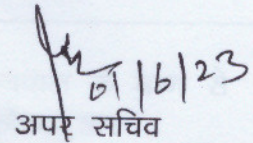 01/6/23
अपर सचिव